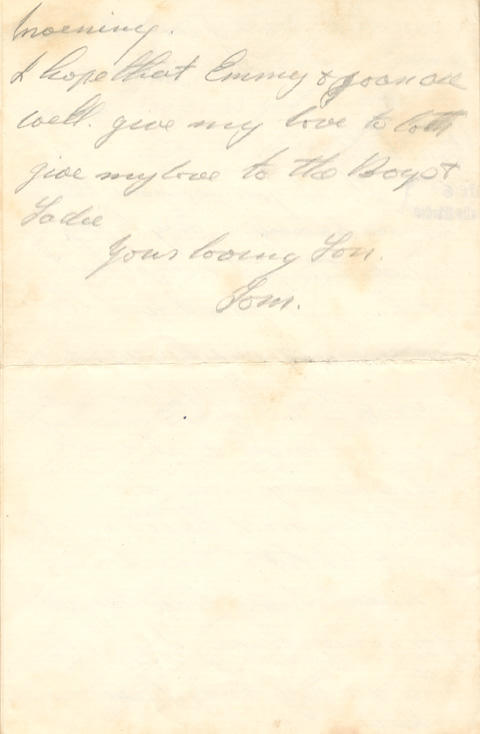 morning.
I hope that Emmy & Joan are
well. give my love to both
give my love to the Boys &
Sadie
Your loving Son.
Tom.